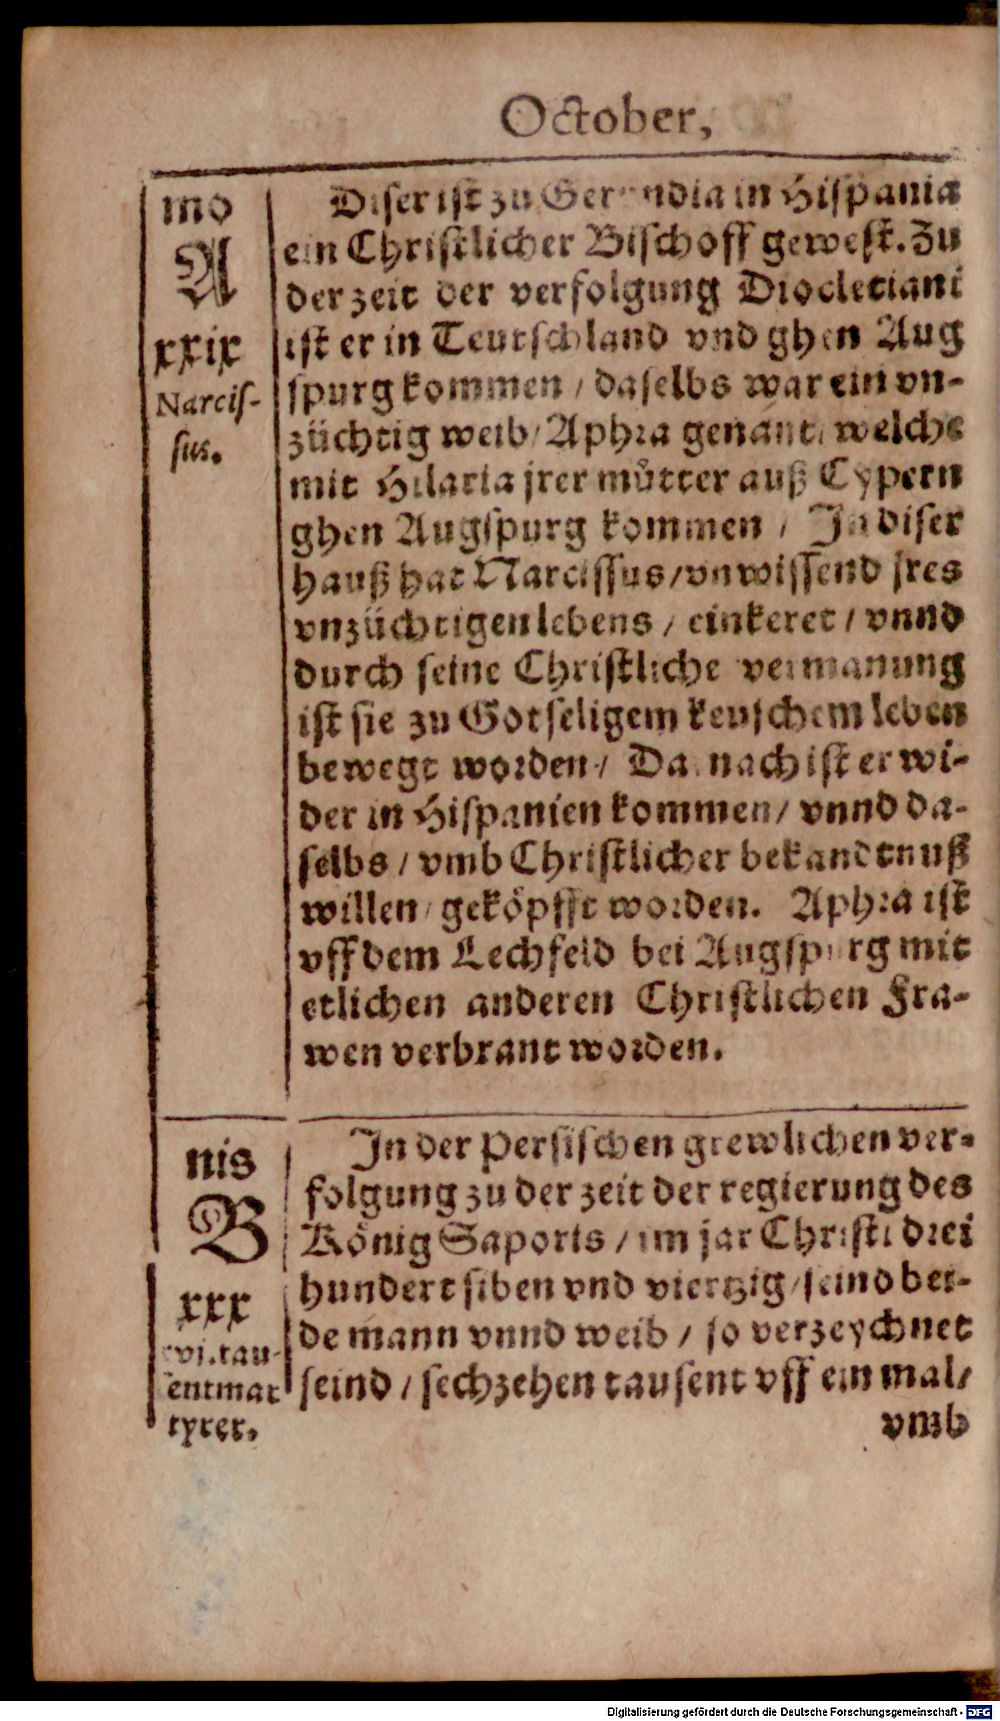 October,
mo
A
xxix
Narcis-
sus.
Diser ist zu Gerundia in Hispania
ein Christlicher Bischoff gewest. Zu
der zeit der verfolgung Diocletiani
ist er in Teutschland vnd ghen Aug
spurg kommen / daselbs war ein vn-
züchtig weib / Aphra genant / welche
mit Hilaria jrer můtter auß Cypern
ghen Augspurg kommen / In diser
hauß hat Narcissus / vnwissend jres
vnzüchtigen lebens / einkeret / vnnd
durch seine Christliche vermanung
ist sie zu Gotseligem keuschem leben
bewegt worden / Darnach ist er wi-
der in Hispanien kommen / vnnd da-
selbs / vmb Christlicher bekandtnuß
willen / geköpfft worden. Aphra ist
vff dem Lechfeld bei Augspurg mit
etlichen anderen Christlichen Fra-
wen verbrant worden.
nis
B
xxx
xvj. tau-
sentmar
tyrer.
In der Persischen grewlichen ver-
folgung zu der zeit der regierung des
König Saporis / im jar Christi drei
hundert siben vnd viertzig / seind bei-
de mann vnnd weib / so verzeychnet
seind / sechzehen tausent vff ein mal /
vmb
Digitalisierung gefördert durch die Deutsche Forschungsgemeinschaft - DFG